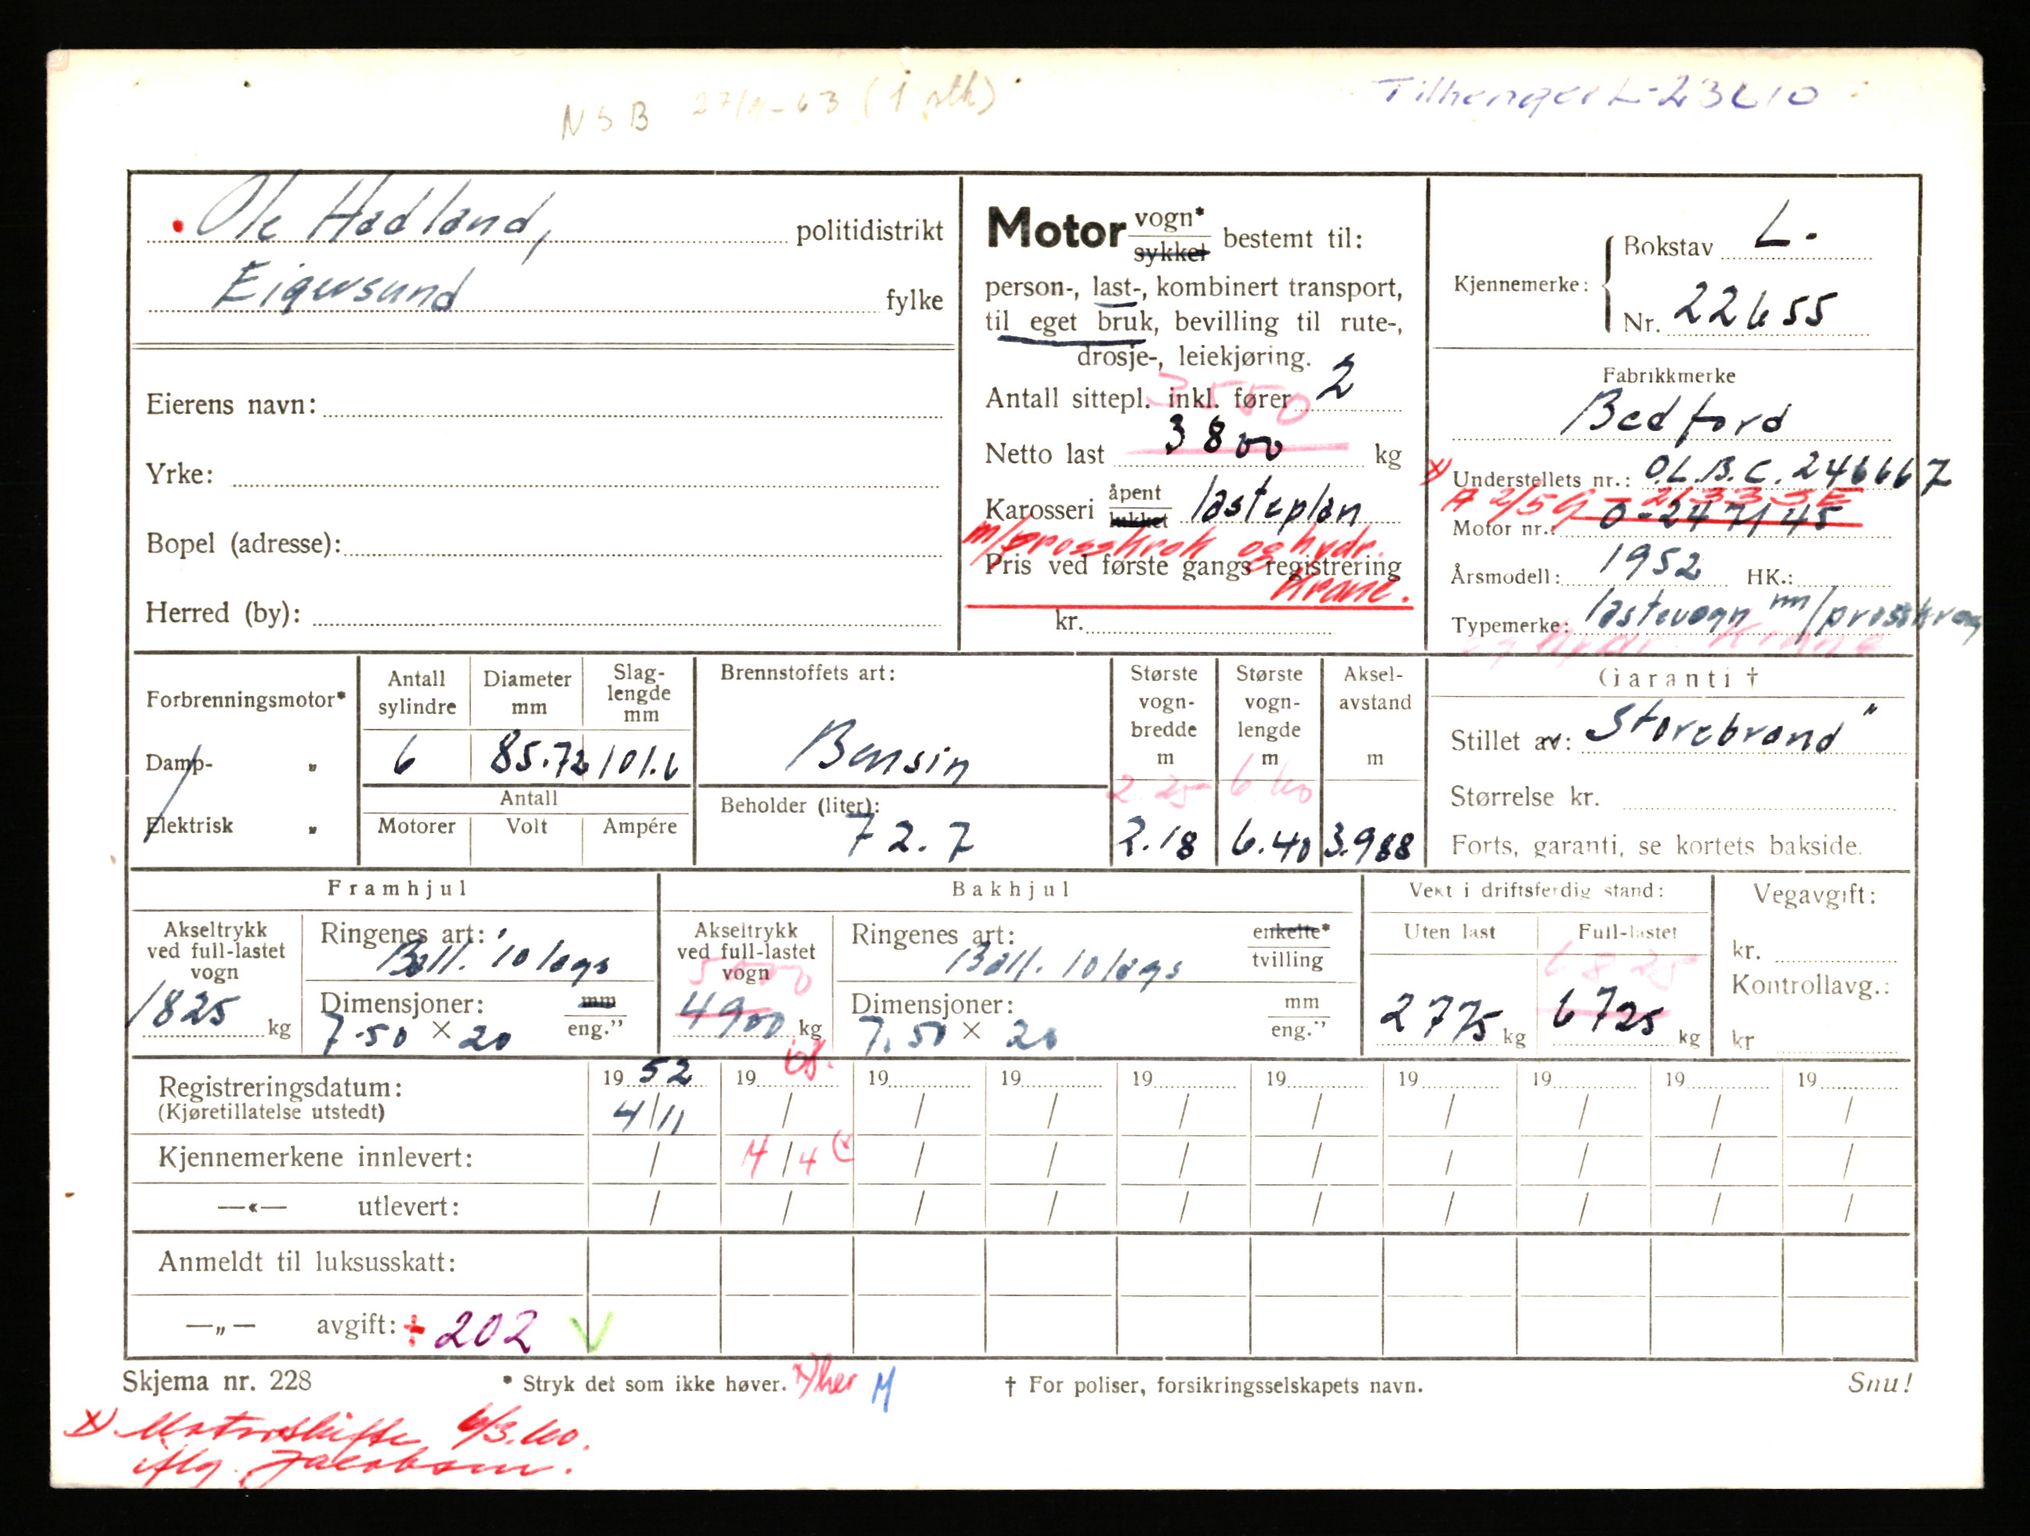 NSB 27/9-63 (1 stk)
Tilhenger L-23610
Ole Hadland, politidistrikt
Eigersund fylke
Eierens navn:
Yrke:
Bopel (adresse):
Herred (by):
Motor vogn* sykkel bestemt til:
person-, last-, kombinert transport,
til eget bruk, bevilling til rute-,
drosje-, leiekjøring.
Antall sittepl. inkl. fører 2
3550
Netto last 3800 kg
Karosseri åpent lukket lasteplan
m/prosskrok og hydr.
Pris ved første gangs registrering
Krane.
kr.
Kjennemerke: Bokstav L.
Nr. 22655
Fabrikkmerke
Bedford
x) Understellets nr.: O.L.B.C. 246667
A 2/59
Motor nr.: 0-247145
Årsmodell: 1952 HK.:
Typemerke: lastevogn m/prosskrog
og hydr. Krane
Forbrenningsmotor*
Damp- „
Elektrisk „
Antall sylindre 6
Diameter mm 85.72
Slag-lengde mm 101.6
Antall
Motorer Volt Ampére
Brennstoffets art:
Bensin
Beholder (liter):
72.7
Største vogn-bredde m 2.25 2.18
Største vogn-lengde m 6 60 6.40
Aksel-avstand m 3.988
Garanti †
Stillet av: Storebrand"
Størrelse kr.
Forts, garanti, se kortets bakside.
Framhjul
Akseltrykk ved full-lastet vogn
1825 kg
Ringenes art: Ball. 10 lags
Dimensjoner: mm
7.50 × 20 eng.”
Bakhjul
Akseltrykk ved full-lastet vogn
5000
4900 kg
Ringenes art: Ball. 10 lags enkelte* tvilling
Dimensjoner: mm
7.50 × 20 eng.”
Vekt i driftsferdig stand:
Uten last Full-lastet
6825
2775 kg 6725 kg
Vegavgift:
kr.
Kontrollavg.:
kr
Registreringsdatum: 19 52 19 19 19 19 19 19 19 19 19
(Kjøretillatelse utstedt) 4/11 / / / / / / / / /
Kjennemerkene innlevert: / 4/4 / / / / / / / /
—«— utlevert: / / / / / / / / / /
Anmeldt til luksusskatt:
—„— avgift: ÷ 202 V
Skjema nr. 228
* Stryk det som ikke høver.
x) her M
† For poliser, forsikringsselskapets navn.
Snu!
x) Motorskifte 6/3.60.
iflg. Jacobsen.